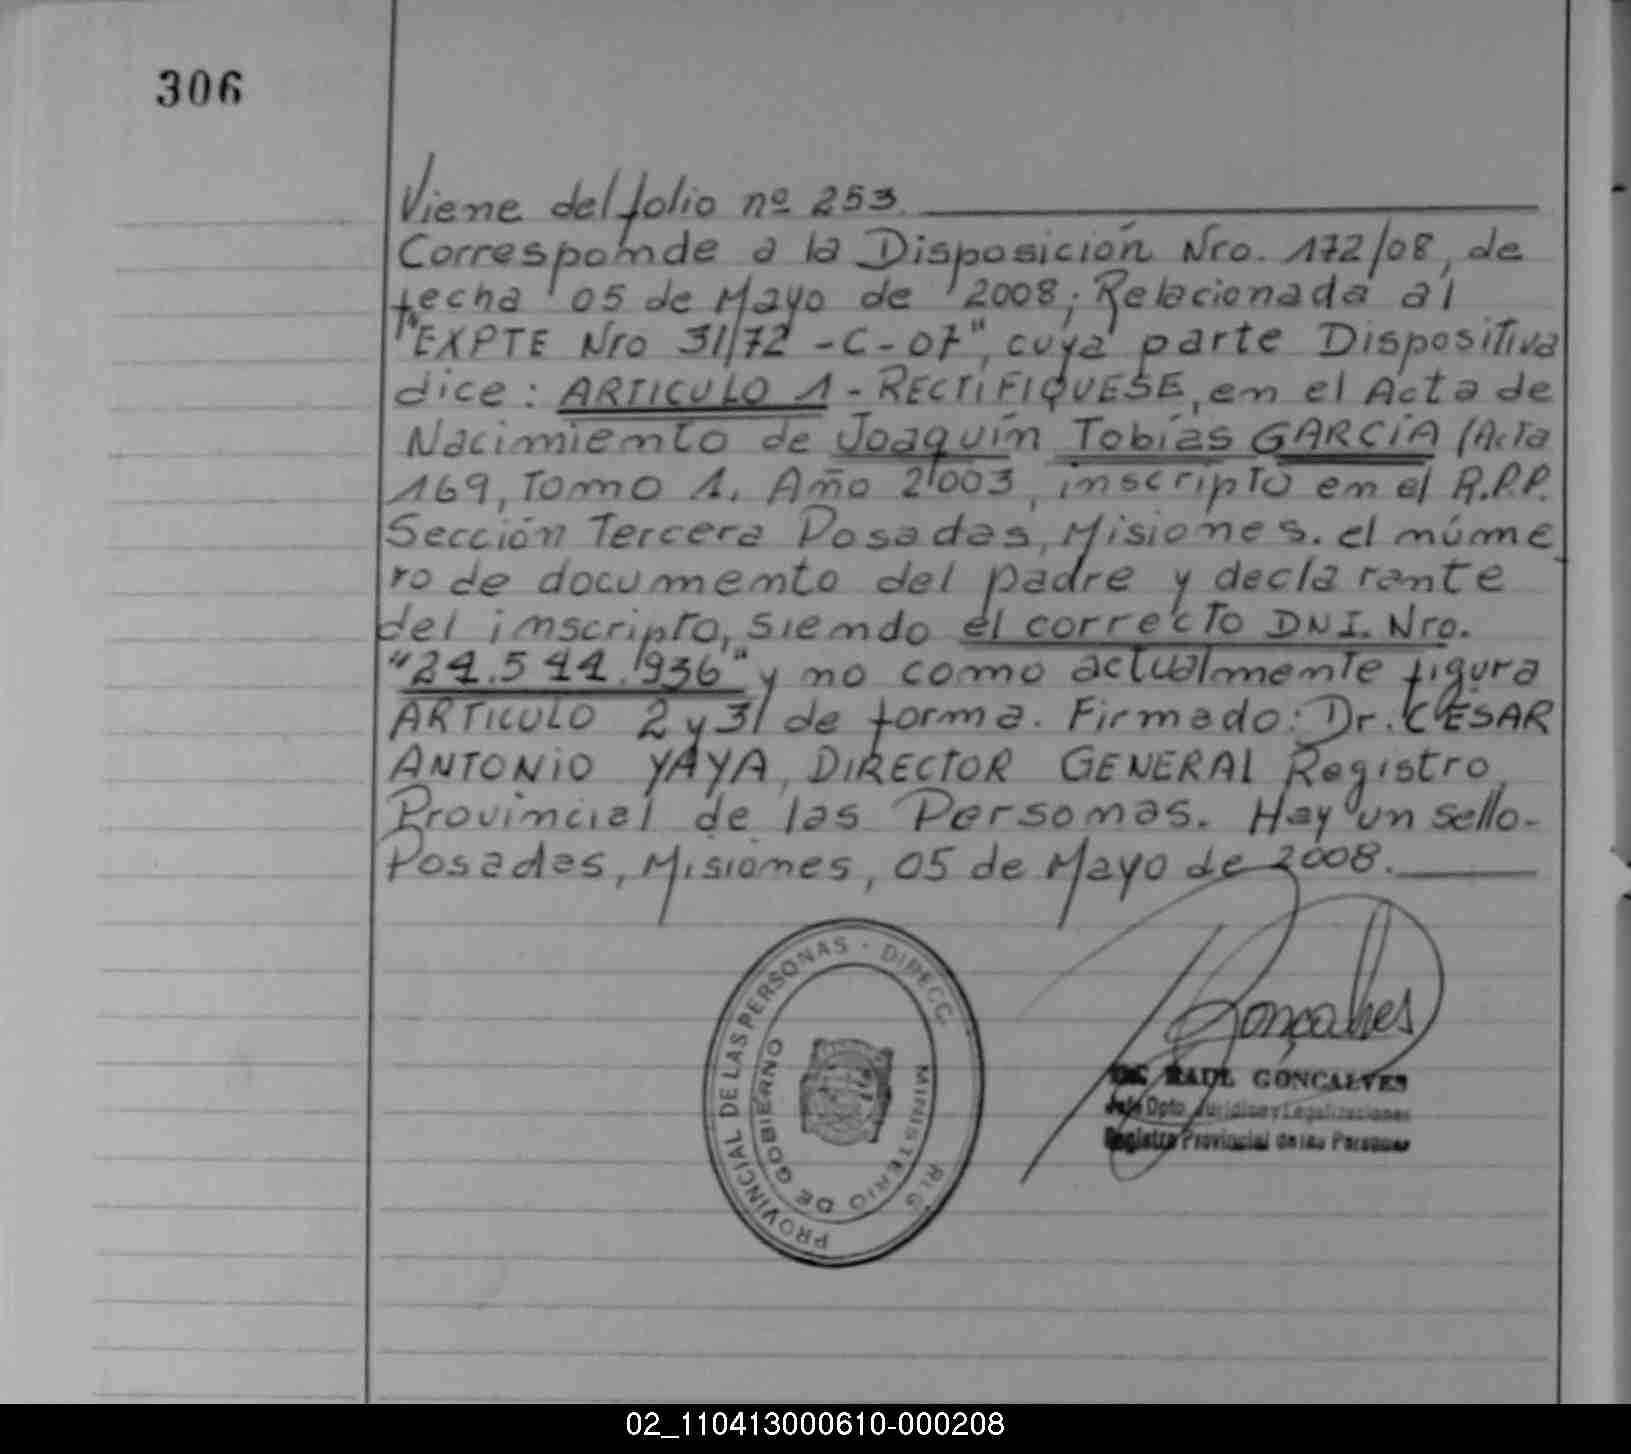 306
Viene del folio nº 253.
Corresponde a la Disposición Nro. 172/08, de
fecha 05 de Mayo de 2008, Relacionada al
"EXPTE Nro 3172 -C-07", cuya parte Dispositiva
dice: ARTICULO 1 - RECTIFIQUESE, en el Acta de
Nacimiento de Joaquín Tobías GARCÍA (Acta
169, Tomo 1. Año 2003, inscripto en el R.P.P.
Sección Tercera Posadas, Misiones. el núme
ro de documento del padre y declarante
del inscripto, siendo el correcto DNI. Nro.
"24.544.936" y no como actualmente figura
ARTICULO 2 y 3 de forma. Firmado: Dr. CESAR
ANTONIO YAYA, DIRECTOR GENERAL Registro
Provincial de las Personas. Hay un sello-
Posadas, Misiones, 05 de Mayo de 2008.
PROVINCIAL DE LAS PERSONAS · DIRECC.
MINISTERIO DE GOBIERNO
Gonçalves
RAUL GONCALVES
Jefe Dpto. Juridico y Legalizaciones
Registro Provincial de las Personas
02_110413000610-000208